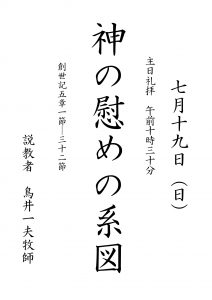 七月十九日（日）
主日礼拝　午前十時三十分
神の慰めの系図
創世記五章一節―三十二節
説教者　鳥井一夫牧師